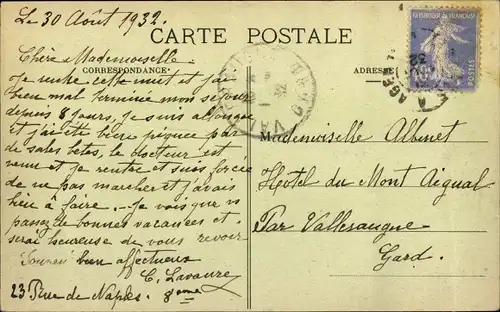 Le 30 Août 1932.
CARTE POSTALE
RÉPUBLIQUE FRANÇAISE
POSTES
CORRESPONDANCE
ADRESSE
Chère Mademoiselle
Je rentre cette nuit et j'ai
bien mal terminée mon séjour
depuis 8 jours, je suis allongée
et j'ai été bien piquée par
de sales bêtes, le docteur est
venu et je rentre et suis forcée
de ne pas marcher et j'avais
bien à faire. Je vois que vs
passez de bonnes vacances et
serai heureuse de vous revoir
Souvenir bien affectueux
C. Lavaure
23 Rue de Naples. 8eme
Mademoiselle Albinet
Hôtel du Mont Aigual
Par Valleraugue
Gard.